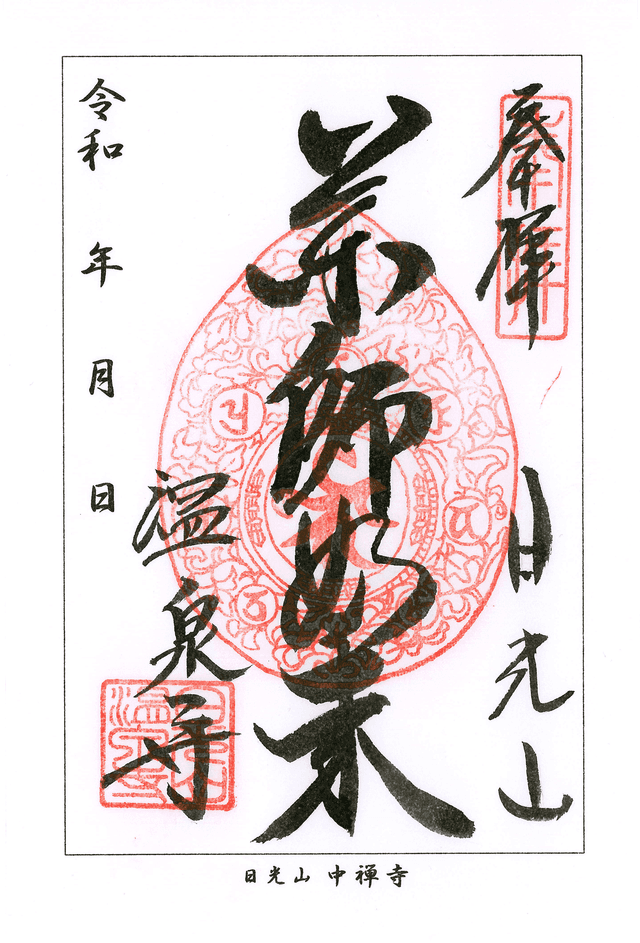 奉拝
日光山
薬師如来
温泉寺
令和 年 月 日
日光山 中禅寺